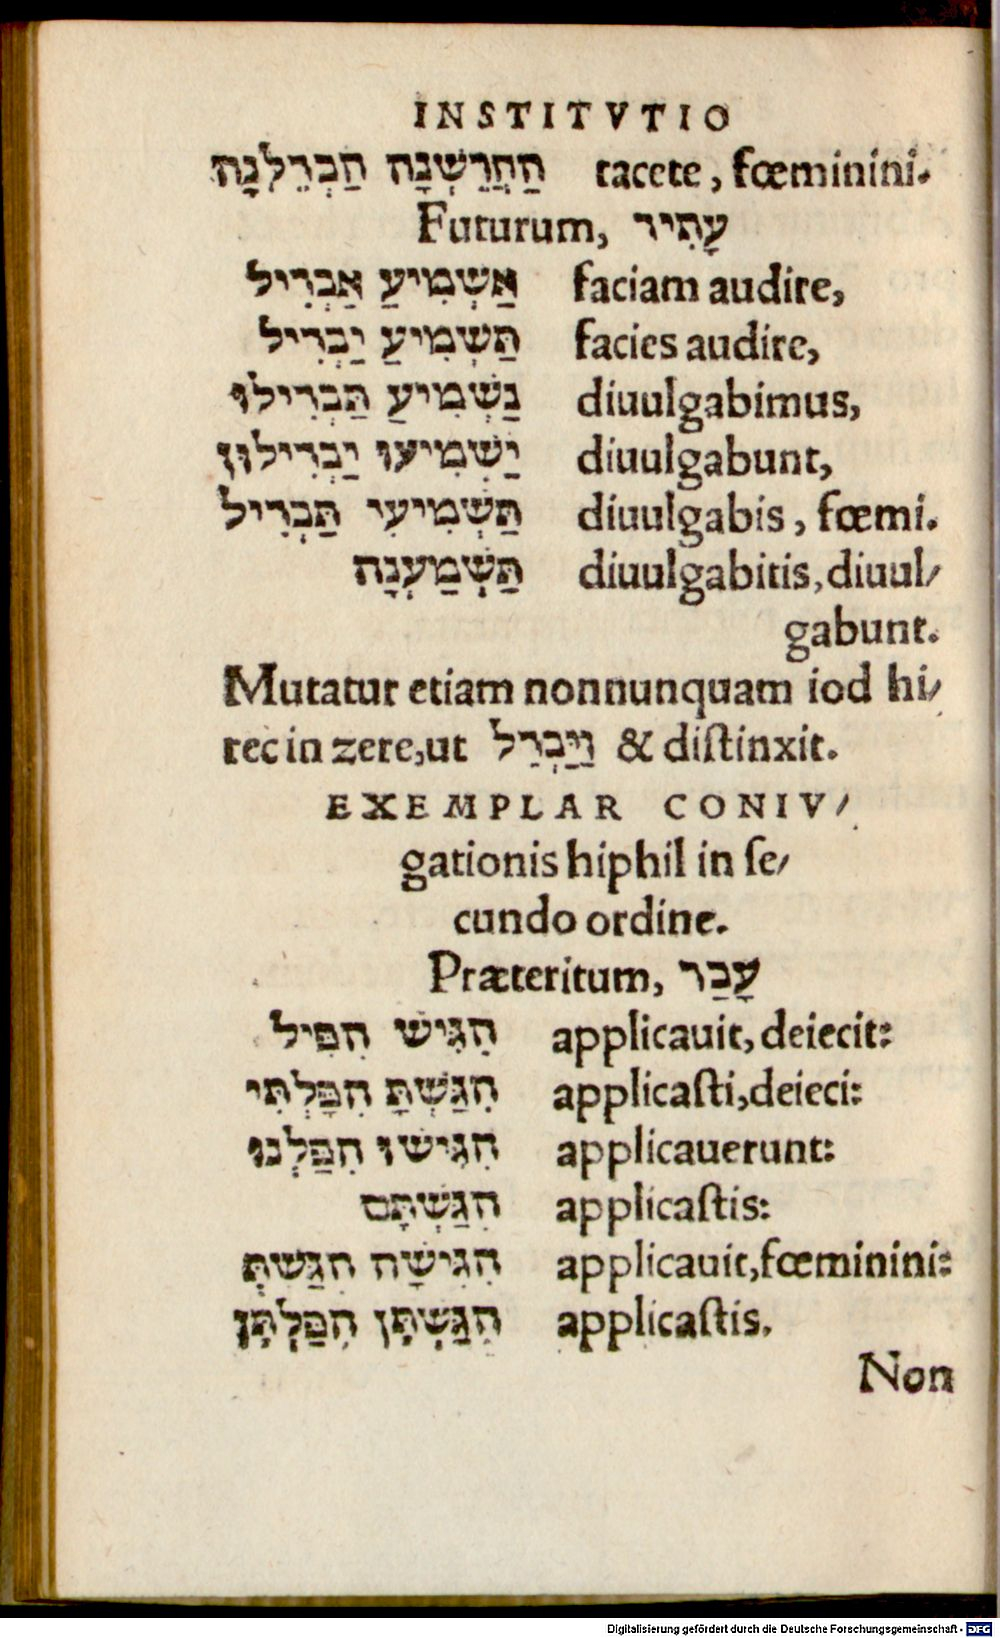 INSTITVTIO
הַחֲרֵשְׁנָה הַבְדֵלְנָה tacete, fœminini.
Futurum, עָתִיד
אַשְׁמִיעַ אַבְדִיל faciam audire,
תַּשְׁמִיעַ יַבְדִיל facies audire,
נַשְׁמִיעַ תַּבְדִילוּ diuulgabimus,
יַשְׁמִיעוּ יַבְדִילוּן diuulgabunt,
תַּשְׁמִיעִי תַּבְדִיל diuulgabis, fœmi.
תַּשְׁמַעְנָה diuulgabitis, diuul/
gabunt.
Mutatur etiam nonnunquam iod hi/
rec in zere, ut וַיַּבְדֵל & distinxit.
EXEMPLAR CONIV/
gationis hiphil in ſe/
cundo ordine.
Præteritum, עָבַר
הִגִּישׁ הִפִּיל applicauit, deiecit:
הִגַּשְׁתָּ הִפַּלְתִּי applicaſti, deieci:
הִגִּישׁוּ הִפַּלְנוּ applicauerunt:
הִגַּשְׁתֶּם applicaſtis:
הִגִּישָׁה הִגַּשְׁתְּ applicauit, fœminini:
הִגַּשְׁתֶּן הִפַּלְתֶּן applicaſtis.
Non
Digitalisierung gefördert durch die Deutsche Forschungsgemeinschaft - DFG